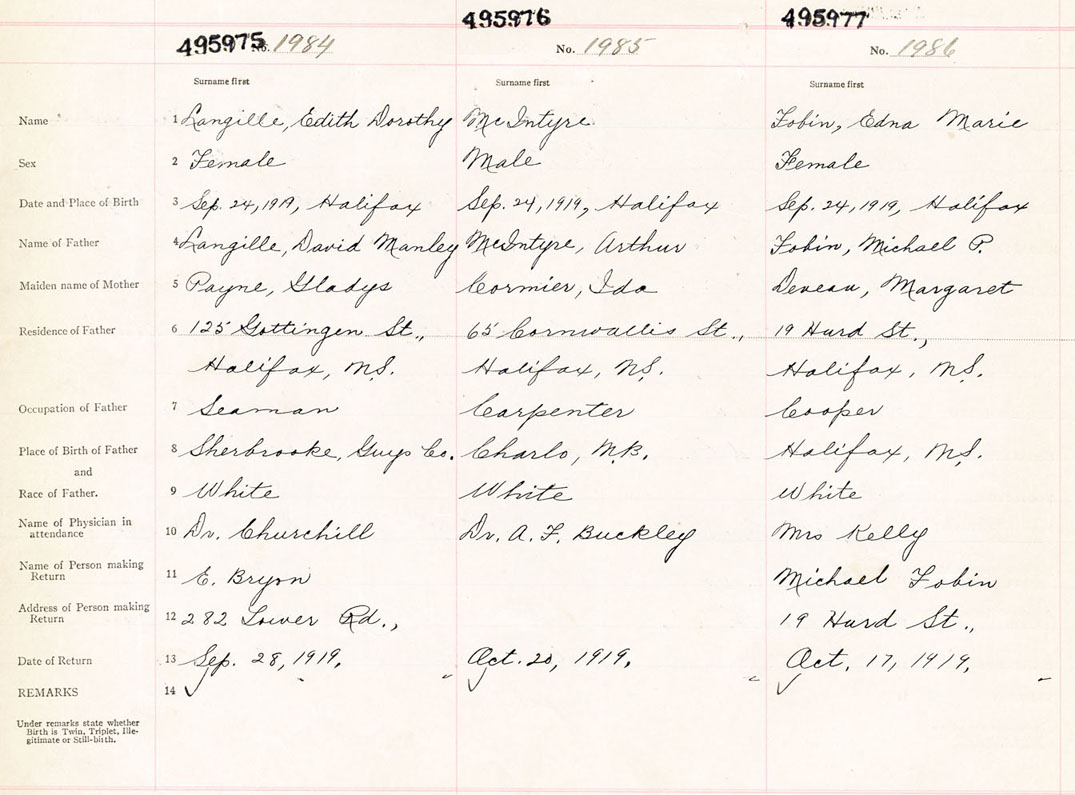 495975 495976 495977
No. 1984 No. 1985 No. 1986
Surname first Surname first Surname first
Name 1 Langille, Edith Dorothy McIntyre Tobin, Edna Marie
Sex 2 Female Male Female
Date and Place of Birth 3 Sep. 24, 1919, Halifax Sep. 24, 1919, Halifax Sep. 24, 1919, Halifax
Name of Father 4 Langille, David Manley McIntyre, Arthur Tobin, Michael P.
Maiden name of Mother 5 Payne, Gladys Cormier, Ida Deveau, Margaret
Residence of Father 6 125 Gottingen St., 65 Cornwallis St., 19 Hurd St.,
Halifax, N.S. Halifax, N.S. Halifax, N.S.
Occupation of Father 7 Seaman Carpenter Cooper
Place of Birth of Father 8 Sherbrooke, Guys Co. Charlo, N.B. Halifax, N.S.
and
Race of Father. 9 White White White
Name of Physician in
attendance 10 Dr. Churchill Dr. A. F. Buckley Mrs Kelly
Name of Person making
Return 11 E. Bryon Michael Tobin
Address of Person making
Return 12 282 Lower Rd., 19 Hurd St.,
Date of Return 13 Sep. 28, 1919. Oct. 20, 1919. Oct. 17, 1919.
REMARKS 14
Under remarks state whether
Birth is Twin, Triplet, Ille-
gitimate or Still-birth.